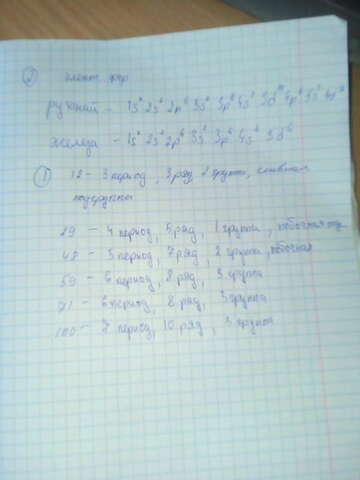 ② элект. фор
рутений - 1s² 2s² 2p⁶ 3s² 3p⁶ 4s² 3d¹⁰ 4p⁶ 5s² 4d⁶
железа - 1s² 2s² 2p⁶ 3s² 3p⁶ 4s² 3d⁶
① 12 - 3 период, 3 ряд, 2 группа, главная
подгруппа
29 - 4 период, 5 ряд, 1 группа, побочная под
48 - 5 период, 7 ряд, 2 группа, побочная
59 - 6 период, 8 ряд, 3 группа
71 - 6 период, 8 ряд, 3 группа
100 - 7 период, 10 ряд, 3 группа